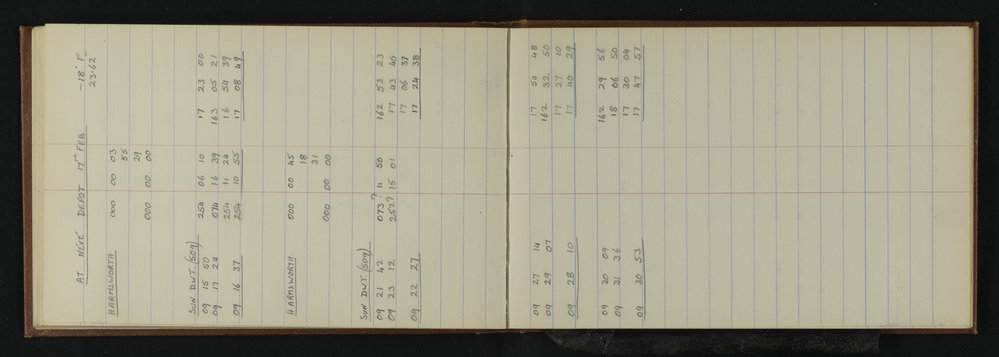 AT NÉVÉ DEPOT 17th FEB -18° F
23·62"
HARMSWORTH 000 00 03
55
29
000 00 00
SUN DWT. (509)
09 15 50 254 06 10 17 23 00
09 17 24 074 16 39 163 05 21
254 11 24 16 54 39
09 16 37 254 10 55 17 08 49
HARMSWORTH. 000 00 45
18
31
000 00 00
SUN DWT. (509)
09 21 42 073? 11 50 162 53 23
09 23 12 252? 15 01 17 43 40
17 06 37
09 22 27 17 24 38
09 27 14 17 54 48
09 29 07 162 32 50
17 27 10
09 28 10 17 40 29
09 30 09 162 29 56
09 31 36 18 06 50
17 30 04
09 30 53 17 47 57